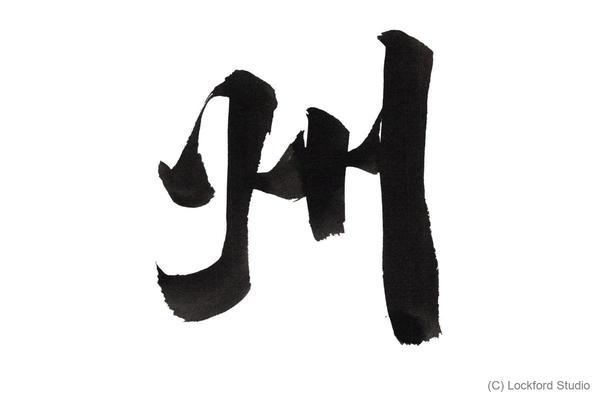 州
(C) Lockford Studio